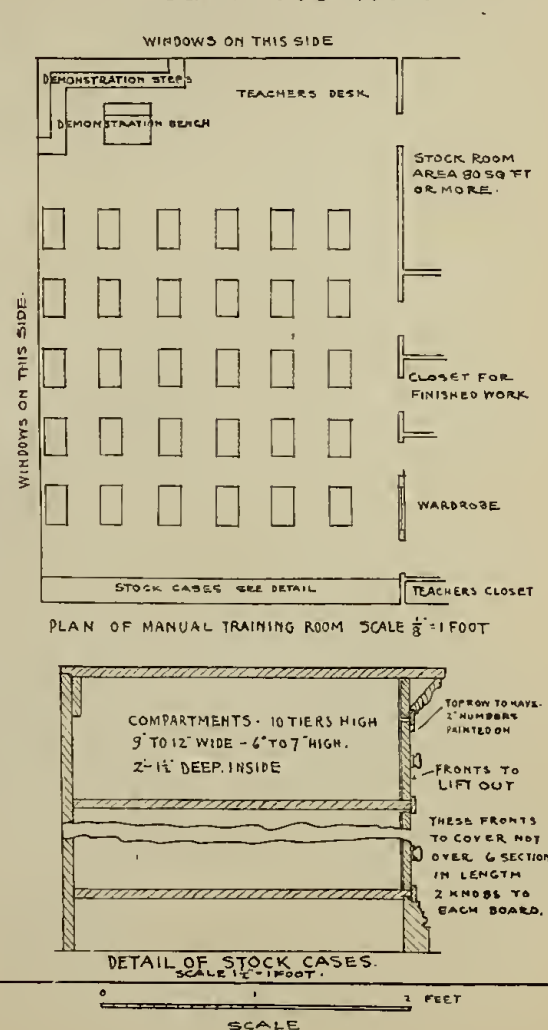 WINDOWS ON THIS SIDE
DEMONSTRATION STEPS
TEACHERS DESK
DEMONSTRATION BENCH
STOCK ROOM
AREA 80 SQ FT
OR MORE.
WINDOWS ON THIS SIDE.
CLOSET FOR
FINISHED WORK
WARDROBE
STOCK CASES SEE DETAIL
TEACHERS CLOSET
PLAN OF MANUAL TRAINING ROOM SCALE 1/8" = 1 FOOT
COMPARTMENTS - 10 TIERS HIGH
9" TO 12" WIDE - 6" TO 7" HIGH.
2'-1½" DEEP. INSIDE
TOP ROW TO HAVE
2" NUMBERS
PAINTED ON
FRONTS TO
LIFT OUT
THESE FRONTS
TO COVER NOT
OVER 6 SECTION
IN LENGTH
2 KNOBS TO
EACH BOARD.
DETAIL OF STOCK CASES.
SCALE 1½" = 1 FOOT.
0 1 2 FEET
SCALE